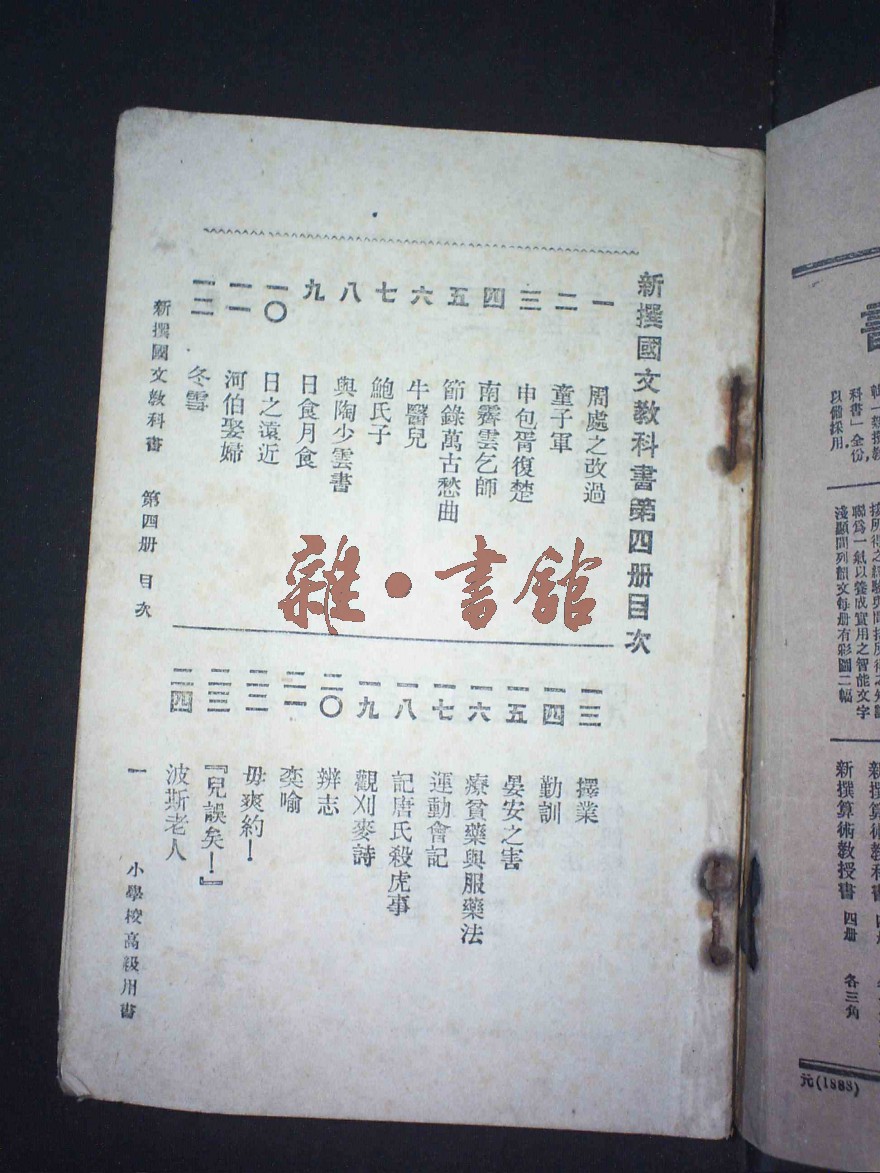 新撰國文教科書第四册目次
一 周處之改過
二 童子軍
三 申包胥復楚
四 南霽雲乞師
五 節錄萬古愁曲
六 牛醫兒
七 鮑氏子
八 與陶少雲書
九 日食月食
一〇 日之遠近
一一 河伯娶婦
一二 冬雪
一三 擇業
一四 勤訓
一五 晏安之害
一六 療貧藥與服藥法
一七 運動會記
一八 記唐氏殺虎事
一九 觀刈麥詩
二〇 辨志
二一 奕喻
二二 毋爽約！
二三 『兒誤矣！』
二四 波斯老人
新撰國文教科書 第四册 目次 一 小學校高級用書
雜·書館
書
科書」全份，
以備採用
聯爲一紙以養成實用之智能文字
淺顯間列韻文每册有彩圖二幅
新撰算術教科書 四册
新撰算術教授書 四册 各三角
元(1888)